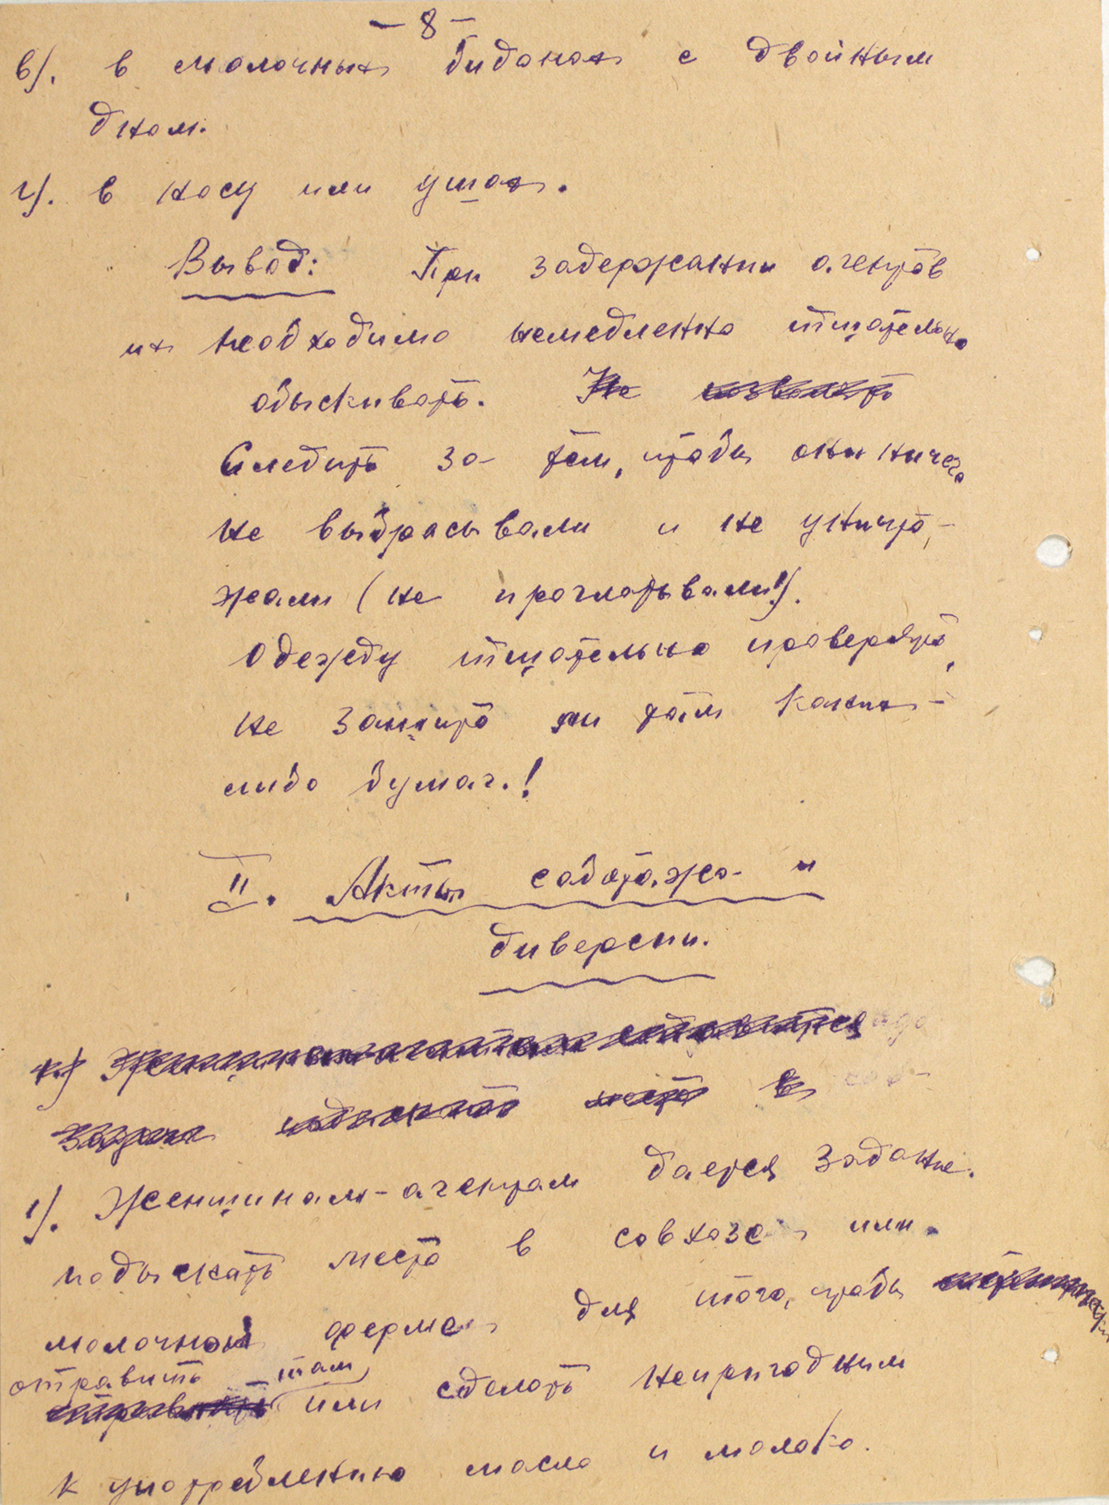 – 8 –
в). в молочных бидонах с двойным
дном.
г). в носу или ушах.
Вывод: При задержании агентов
их необходимо немедленно тщательно
обыскивать. Не позволять
Следить за тем, чтобы они ничего
не выбрасывали и не уничто-
жали (не проглатывали!).
Одежду тщательно проверять,
не зашито ли там каких-
либо бумаг.!
II. Акты саботажа и
диверсии.
1.) Женщинам агентам ставится
задача подыскать место в
1). Женщинам-агентам дается задание.
подыскать место в совхозе или
молочной ферме для того, чтобы
отравить там
или сделать непригодным
к употреблению масло и молоко.